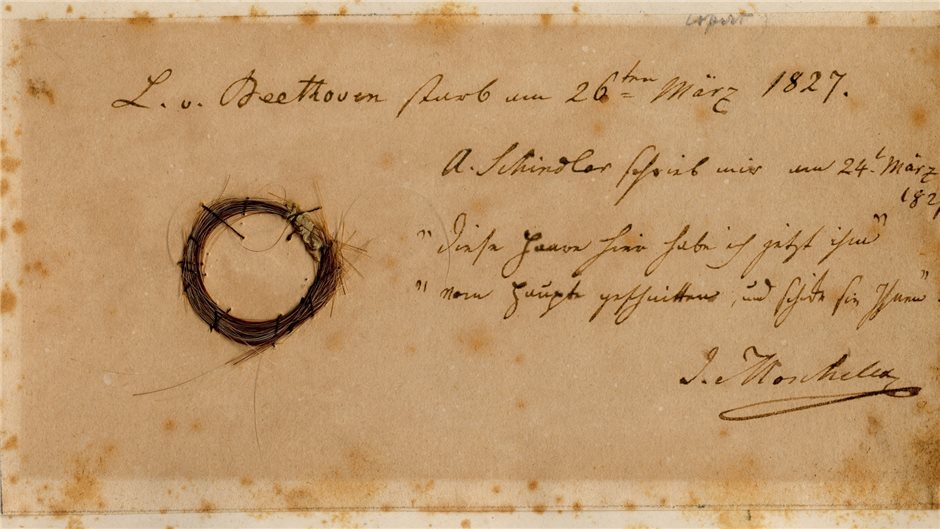 L. v. Beethoven starb am 26ten März 1827.
A. Schindler schrieb mir am 24t März
182
" Diese Haare hier habe ich jetzt ihm "
" vom Haupte geschnitten, und schicke sie Ihnen "
I. Moscheles